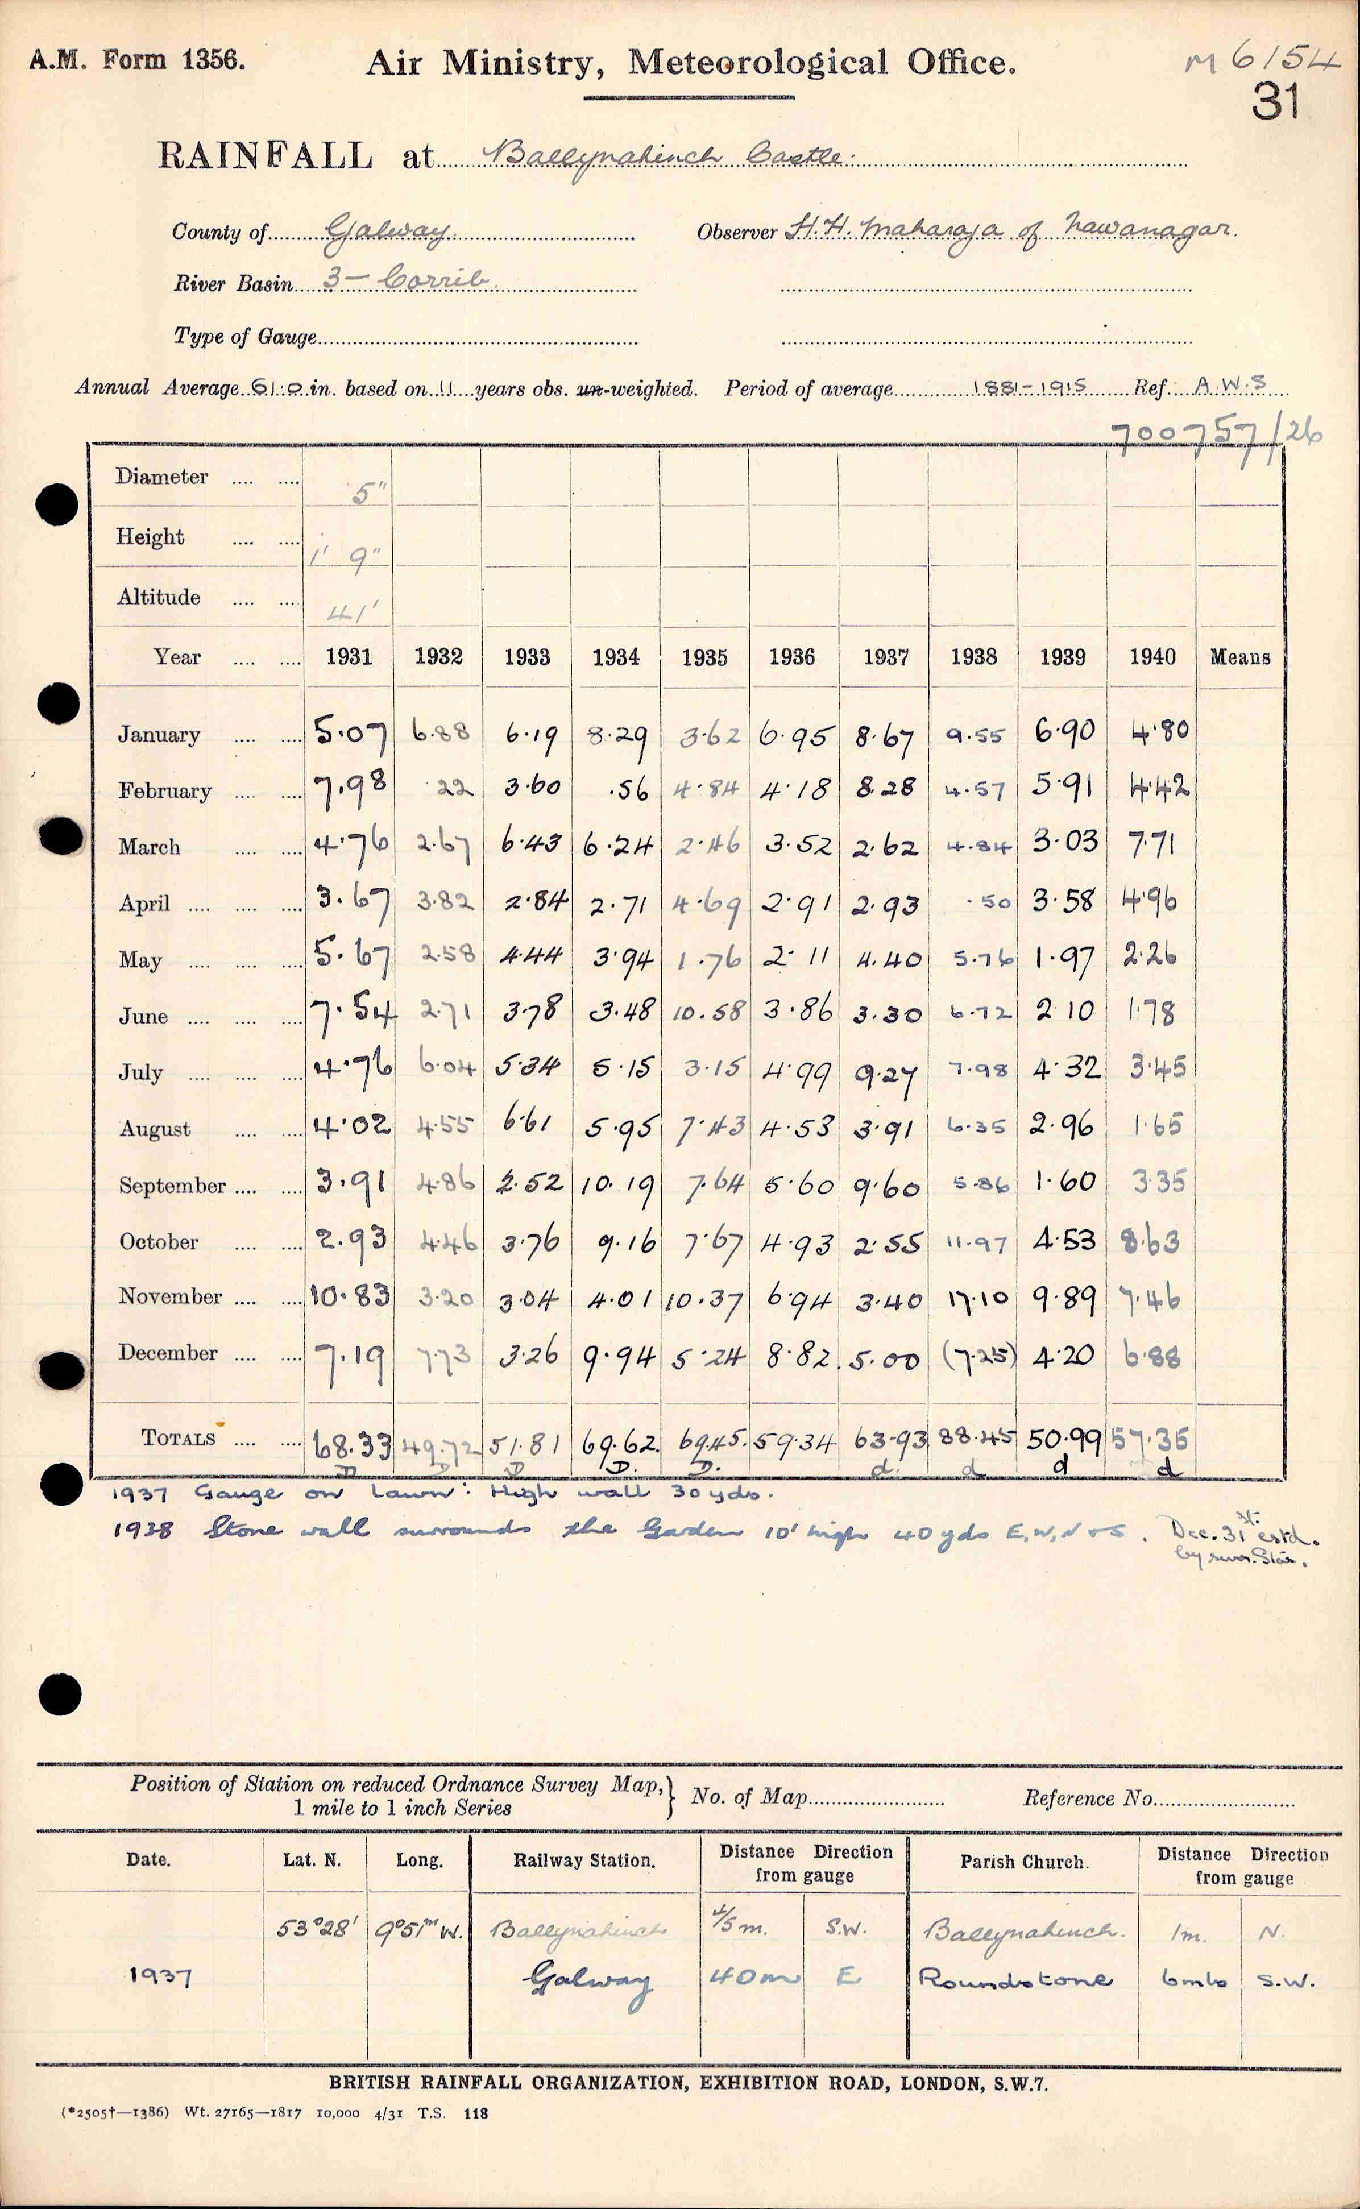 A.M. Form 1356. Air Ministry, Meteorological Office. M 6154
31
RAINFALL at Ballynahinch Castle.
County of Galway. Observer H.H. Maharaja of Nawanagar.
River Basin 3 - Corrib
Type of Gauge
Annual Average 61.0 in. based on 11 years obs. un-weighted. Period of average 1881-1915 Ref. A.W.S
700757/26
Diameter .... .... 5"
Height .... .... 1' 9"
Altitude .... .... 41'
Year .... .... 1931 1932 1933 1934 1935 1936 1937 1938 1939 1940 Means
January .... .... 5.07 6.88 6.19 8.29 3.62 6.95 8.67 9.55 6.90 4.80
February .... .... 7.98 .22 3.60 .56 4.84 4.18 8.28 4.57 5.91 4.42
March .... .... 4.76 2.67 6.43 6.24 2.46 3.52 2.62 4.84 3.03 7.71
April .... .... .... 3.67 3.82 2.84 2.71 4.69 2.91 2.93 .50 3.58 4.96
May .... .... .... 5.67 2.58 4.44 3.94 1.76 2.11 4.40 5.76 1.97 2.26
June .... .... .... 7.54 2.71 3.78 3.48 10.58 3.86 3.30 6.72 2.10 1.78
July .... .... .... 4.76 6.04 5.34 5.15 3.15 4.99 9.27 7.98 4.32 3.45
August .... .... 4.02 4.55 6.61 5.95 7.43 4.53 3.91 6.35 2.96 1.65
September .... .... 3.91 4.86 2.52 10.19 7.64 5.60 9.60 5.86 1.60 3.35
October .... .... 2.93 4.46 3.76 9.16 7.67 4.93 2.55 11.97 4.53 8.63
November .... .... 10.83 3.20 3.04 4.01 10.37 6.94 3.40 17.10 9.89 7.46
December .... .... 7.19 7.73 3.26 9.94 5.24 8.82 5.00 (7.25) 4.20 6.88
TOTALS .... .... 68.33 49.72 51.81 69.62 69.45 59.34 63.93 88.45 50.99 57.35
D D D D. D. d. d d d
1937 Gauge on Lawn: High wall 30 yds.
1938 Stone wall surrounds the Garden 10' high 40 yds E, W, N & S. Dec. 31st estd.
by
Position of Station on reduced Ordnance Survey Map, } No. of Map Reference No.
1 mile to 1 inch Series
Date. Lat. N. Long. Railway Station. Distance Direction from gauge Parish Church. Distance Direction from gauge
53°28' 9°51m W. Ballynahinch 4/5 m. S.W. Ballynahinch. 1m. N.
1937 Galway 40m E Roundstone 6mls S.W.
BRITISH RAINFALL ORGANIZATION, EXHIBITION ROAD, LONDON, S.W.7.
(*2505†—1386) Wt. 27165—1817 10,000 4/31 T.S. 118